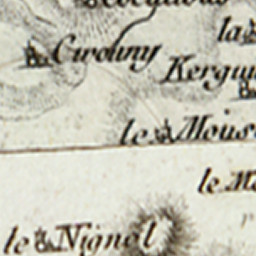 la
Curouny
Kergu
le Mous
le M
le Nignol